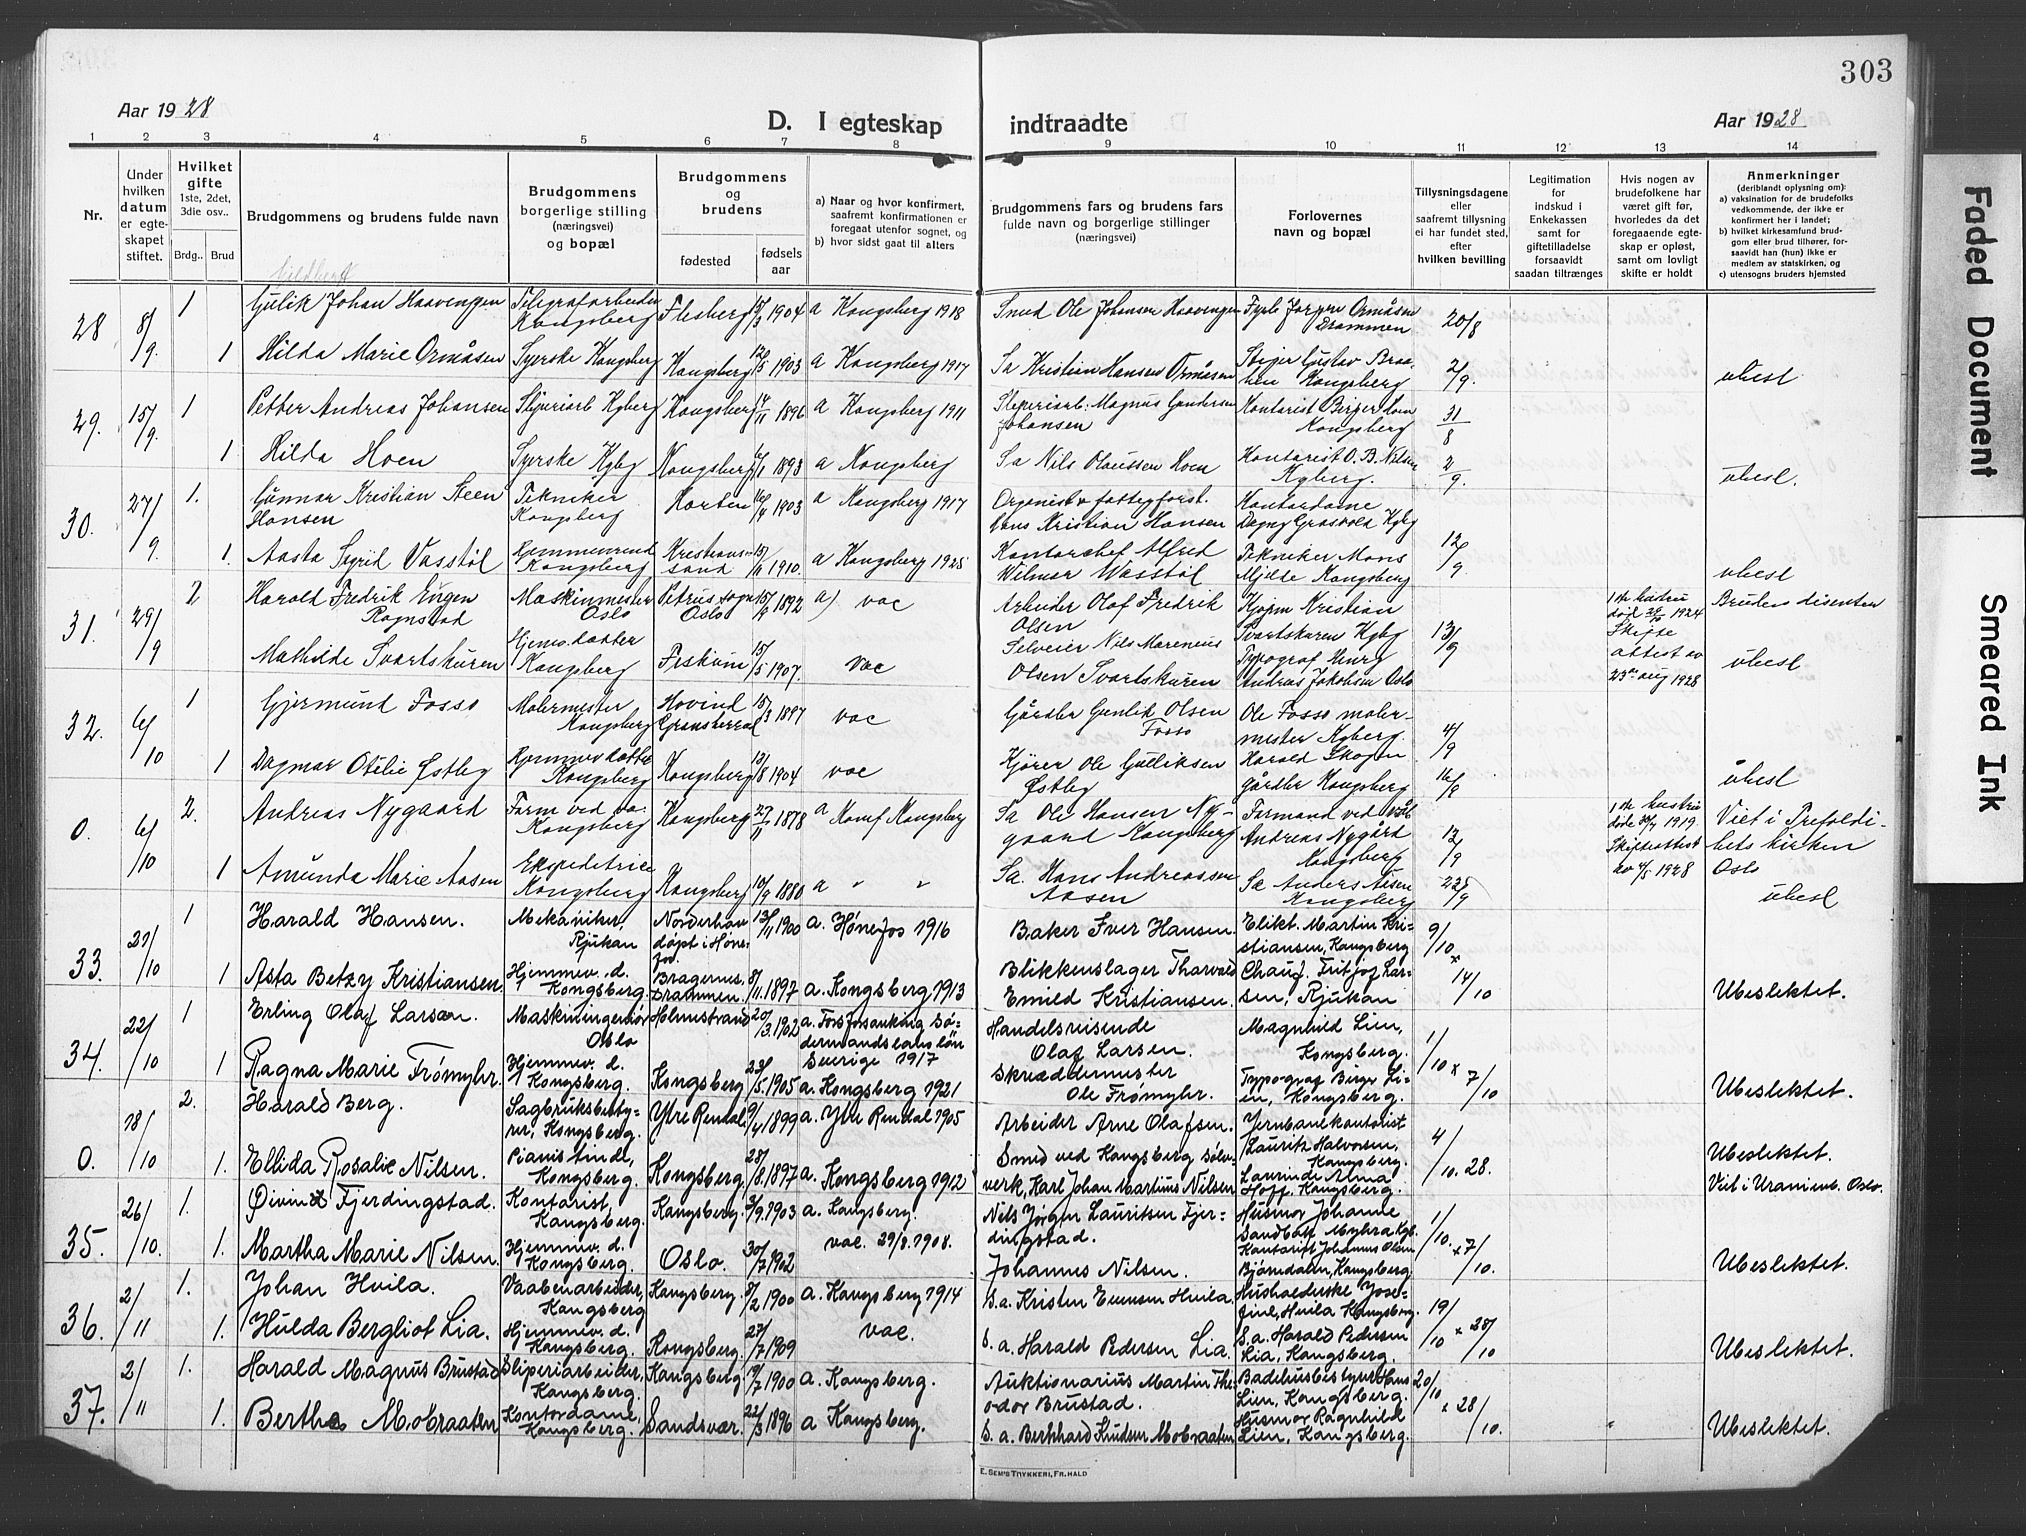 303
Aar 1928
D. I egteskap indtraadte
Aar 1928
1 2 3 4 5 6 7 8 9 10 11 12 13 14
Nr.
Under hvilken datum er egte-skapet stiftet.
Hvilket gifte 1ste, 2det, 3die osv..
Brdg.. Brud
Brudgommens og brudens fulde navn
Brudgommens borgerlige stilling (næringsvei) og bopæl
Brudgommens og brudens
fødested
fødsels aar
a) Naar og hvor konfirmert, saafremt konfirmationen er foregaat utenfor sognet, og
b) hvor sidst gaat til alters
Brudgommens fars og brudens fars fulde navn og borgerlige stillinger (næringsvei)
Forlovernes navn og bopæl
Tillysningsdagene eller saafremt tillysning ei har fundet sted, efter hvilken bevilling
Legitimation for indskud i Enkekassen samt for giftetilladelse forsaavidt saadan tiltrænges
Hvis nogen av brudefolkene har været gift før, hvorledes da det foregaaende egte-skap er opløst, samt om lovligt skifte er holdt
Anmerkninger
(deriblandt oplysning om):
a) vaksination for de brudefolks vedkommende, der ikke er konfirmert her i landet;
b) hvilket kirkesamfund brud-gom eller brud tilhører, for-saavidt han (hun) ikke er medlem av statskirken, og
c) utensogns bruders hjemsted
28 8/9. 1 Gulik Johan Haavengen Telegrafarbeider Kongsberg Flesberg 15/3 1904 a Kongsberg 1918 Smed Ole Johansen Haavengen Jørgen Ormåsen Drammen 20/8
1 Hilda Marie Ormåsen Syerske Kongsberg Kongsberg 12/5 1903 a Kongsberg 1917 Sa Kristian Hansen Ormåsen Stiger Gustav Braa-ten Kongsberg 2/9. ubesl.
29. 15/9. 1 Petter Andreas Johansen Kgberg Kongsberg 14/11 1896 a Kongsberg 1911 Magnus Gundersen Johansen Kontorist Birger Hoen Kongsberg 31/8
1 Hilda Hoen Syerske Kgbg Kongsberg 6/1 1893 a Kongsberg Sa Nils Olaussen Hoen Kontorist O. B. Nilsen Kgberg. 2/9. ubesl.
30. 27/9 1. Gunnar Kristian Steen Hansen Tekniker Kongsberg Horten 16/4 1903 a Kongsberg 1917 Organist & fattigforst. Hans Kristian Hansen Kontordame Dagny Grosvold Kgbg
1. Aasta Sigrid Vasstøl Hjemmev. Kongsberg Kristian-sand 15/11 1910. a Kongsberg 1925 Kontorchef Alfred Wilmar Wasstøl Tekniker Mons Mjelde Kongsberg 12/9 ubesl
31. 29/9 2 Harald Fredrik Eugen Rognstad Maskinmester Oslo Petrus sogn Oslo 15/2 1892 a) vac Arbeider Olaf Fredrik Olsen Kjøpm Kristian Svartskuren Kgbg 13/9 1ste hustru død 26/10 1924 Skifte attest av 23de aug 1928 Bruden disenter
Mathilde Svartskuren Hjemv. datter Kongsberg Fiskum 15/5 1907. vac Selveier Nils Marenius Olsen Svartskuren Typograf Henry Andreas Jakobsen Oslo ubesl
32. 6/10 1 Gjermund Fosso Malermester Kongsberg Hovind Gransherad 15/3 1897 vac Gårdbr Gunlik Olsen Fosso Ole Fosso maler-mester Kgberg. 4/9
1 Dagmar Otilie Østby Hjemmev datter Kongsberg Kongsberg 13/8 1904 vac Kjører Ole Gulliksen Østby Harald Skogen gårdbr Kongsberg 16/8 ubesl
0. 6/10 2. Andreas Nygaard Form ved va. Kongsberg Kongsberg 27/11 1878 a Konf Kongsberg Sa Ole Hansen Ny-gaard Kongsberg Formand ved Andreas Nygård Kongsberg 12/9 1ste hustru døde 30/7 1919. Skifteattest av 4/5 1928 Viet i Trefoldi-hets kirken Oslo
1 Amunda Marie Aasen Ekspeditrice Kongsberg Kongsberg 10/9 1880 a " " Sa. Hans Andreassen Aasen Sa Anders Aasen Kongsberg 22/9 ubesl
33. 21/10 1 Harald Hansen. Mekaniker, Rjukan Norderhov døpt i Høne-fos. 13/11 1900 a. Hønefos 1916 Baker Iver Hansen. Elikt. Martin Kri-stiansen, Kongsberg 9/10 x
1 Asta Betzy Kristiansen. Hjemmev. d. Kongsberg. Bragernes, Drammen. 8/11. 1897 a. Kongsberg 1913 Blikkenslager Tharvald Emild Kristiansen. Chauf. Fritjof Lar-sen, Rjukan 14/10 Ubeslektet.
34. 22/10 1 Erling Olaf Larsen. Maskiningeniør Oslo Holmestrand 20/3. 1902 a. Forsforsanking Sö-dermandslands län Sverige 1917 Handelsreisende Olaf Larsen. Magnhild Lien, Kongsberg. 1/10 x
1 Ragna Marie Frømyhr. Hjemmev. d. Kongsberg. Kongsberg 23/5. 1905 a. Kongsberg 1921 Skræddermester Ole Frømyhr. Typograf Birger Li-en, Kongsberg. 7/10 Ubeslektet.
0. 18/10 2. Harald Berg. Sagbruksbesty-rer, Kongsberg. Ytre Rendal 9/4 1899 a. Ytre Rendal 1905 Arbeider Arne Olafsen. Jernbanekontorist Laurits Halvorsen, Kongsberg. 4/10. 28. Ubeslektet.
1. Ellida Rosalie Nilsen. Pianistinde, Kongsberg. Kongsberg, 28/8. 1897 a. Kongsberg 1912 Smed ved Kongsberg sølv-verk, Karl Johan Martius Nilsen Laurinde Alma Hoff, Kongsberg. Viet i Uranienb. Oslo.
35. 26/10. 1. Øivind Fjerdingstad. Kontorist, Kongsberg. Kongsberg. 3/9. 1903 a. Kongsberg. Nils Jørgen Lauritsen Fjer-dingstad. Husmor Johanne Myhra, Kgb. 1/10. x
1. Martha Marie Nilsen. Hjemmev. d. Kongsberg. Oslo. 30/7 1902 vac. 29/8. 1908. Johannes Nilsen. Kontorist Johannes Olsen Bjørndalen, Kongsberg 7/10. Ubeslektet.
36. 2/11 1. Johan Hvila. Vaabenarbeider, Kongsberg Kongsberg. 8/2 1900 a. Kongsberg 1914 S.a. Kristen Evensen Hvila. Husholderske Jose-fine, Hvila Kongsberg. 19/10 x
1. Hulda Bergliot Lia. Hjemmev. d. Kongsberg. Kongsberg. 27/7 1909 vac. S. a. Harald Pedersen Lia. S. a. Harald Pedersen Lia, Kongsberg. 28/10 Ubeslektet.
37. 2/11 1. Harald Magnus Brustad Sliperiarbeider, Kongsberg. Kongsberg 19/7 1900 a. Kongsberg. Auktionarius Martin The-odor Brustad. Badehusbestyrer Lien, Kongsberg. 20/10 x
1. Berthe Mobraaten Kontordame, Kongsberg. Sandsvær. 22/3 1896 a Kongsberg. S. a. Bernhard Knudsen Mobraaten Husmor Ragnhild Lien, Kongsberg. 28/10. Ubeslektet.
E. SEM'S TRYKKERI, FR.HALD
Faded Document
Smeared Ink